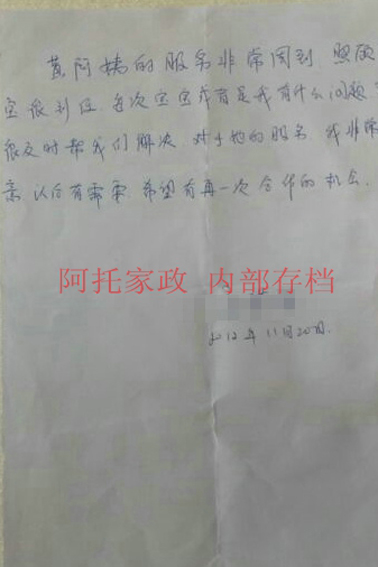 黄阿姨的服务非常周到 照顾
宝很到位 每次宝宝或者是我有什么问题
很及时帮我们解决 对于她的服务 我非常
亲 以后有需要 希望有再一次合作的机会.
阿托家政 内部存档
2012年11月20日.